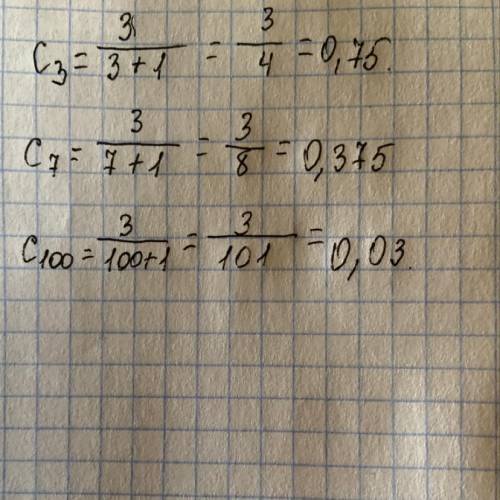 C₃ = 3/(3+1) = 3/4 = 0,75.
C₇ = 3/(7+1) = 3/8 = 0,375
C₁₀₀ = 3/(100+1) = 3/101 = 0,03.